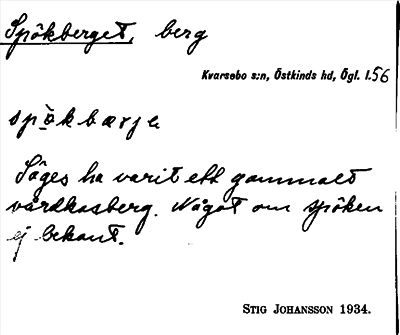 Spökberget, berg
Kvarsebo s:n, Östkinds hd, Ögl. l.56
spö̀kbærje
Säges ha varit ett gammalt
vårdkasberg. Något om spöken
ej bekant.
STIG JOHANSSON 1934.